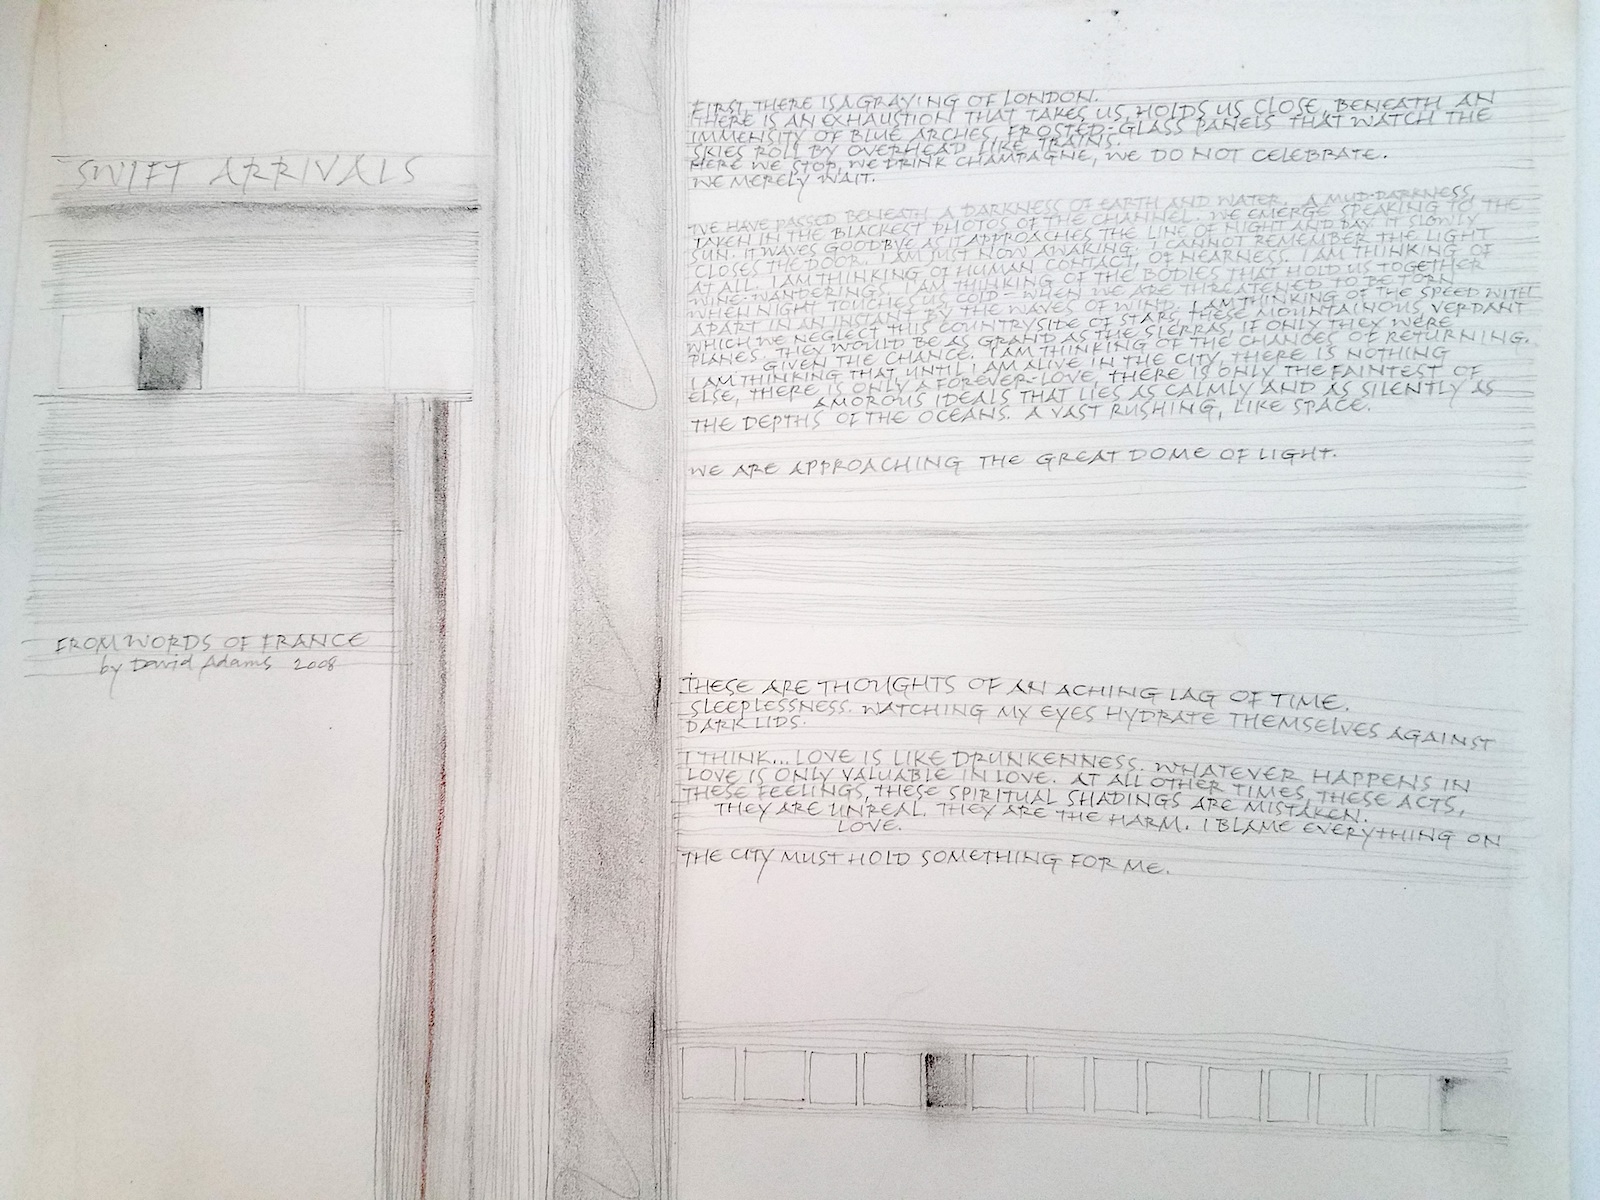 SWIFT ARRIVALS
FROM WORDS OF FRANCE
by David Adams 2008
FIRST, THERE IS A GRAYING OF LONDON.
THERE IS AN EXHAUSTION THAT TAKES US, HOLDS US CLOSE, BENEATH AN
IMMENSITY OF BLUE ARCHES, FROSTED-GLASS PANELS THAT WATCH THE
SKIES ROLL BY OVERHEAD LIKE TRAINS.
HERE WE STOP, WE DRINK CHAMPAGNE, WE DO NOT CELEBRATE.
WE MERELY WAIT.
WE HAVE PASSED BENEATH A DARKNESS OF EARTH AND WATER. A MUD-DARKNESS,
TAKEN IN THE BLACKEST PHOTOS OF THE CHANNEL. WE EMERGE SPEAKING TO THE
SUN. IT WAVES GOODBYE AS IT APPROACHES THE LINE OF NIGHT AND DAY. IT SLOWLY
CLOSES THE DOOR. I AM JUST NOW AWAKING. I CANNOT REMEMBER THE LIGHT
AT ALL. I AM THINKING OF HUMAN CONTACT, OF NEARNESS. I AM THINKING OF
WINE-WANDERINGS. I AM THINKING OF THE BODIES THAT HOLD US TOGETHER
WHEN NIGHT TOUCHES US COLD – WHEN WE ARE THREATENED TO BE TORN
APART IN AN INSTANT BY THE WAVES OF WIND. I AM THINKING OF THE SPEED WITH
WHICH WE NEGLECT THIS COUNTRYSIDE OF STARS, THESE MOUNTAINOUS VERDANT
PLANES. THEY WOULD BE AS GRAND AS THE SIERRAS, IF ONLY THEY WERE
GIVEN THE CHANCE. I AM THINKING OF THE CHANCES OF RETURNING.
I AM THINKING THAT UNTIL I AM ALIVE IN THE CITY, THERE IS NOTHING
ELSE, THERE IS ONLY A FOREVER-LOVE, THERE IS ONLY THE FAINTEST OF
AMOROUS IDEALS THAT LIES AS CALMLY AND AS SILENTLY AS
THE DEPTHS OF THE OCEANS. A VAST RUSHING, LIKE SPACE.
WE ARE APPROACHING THE GREAT DOME OF LIGHT.
THESE ARE THOUGHTS OF AN ACHING LAG OF TIME.
SLEEPLESSNESS. WATCHING MY EYES HYDRATE THEMSELVES AGAINST
DARK LIDS.
I THINK... LOVE IS LIKE DRUNKENNESS. WHATEVER HAPPENS IN
LOVE IS ONLY VALUABLE IN LOVE. AT ALL OTHER TIMES, THESE ACTS,
THESE FEELINGS, THESE SPIRITUAL SHADINGS ARE MISTAKEN.
THEY ARE UNREAL. THEY ARE THE HARM. I BLAME EVERYTHING ON
LOVE.
THE CITY MUST HOLD SOMETHING FOR ME.